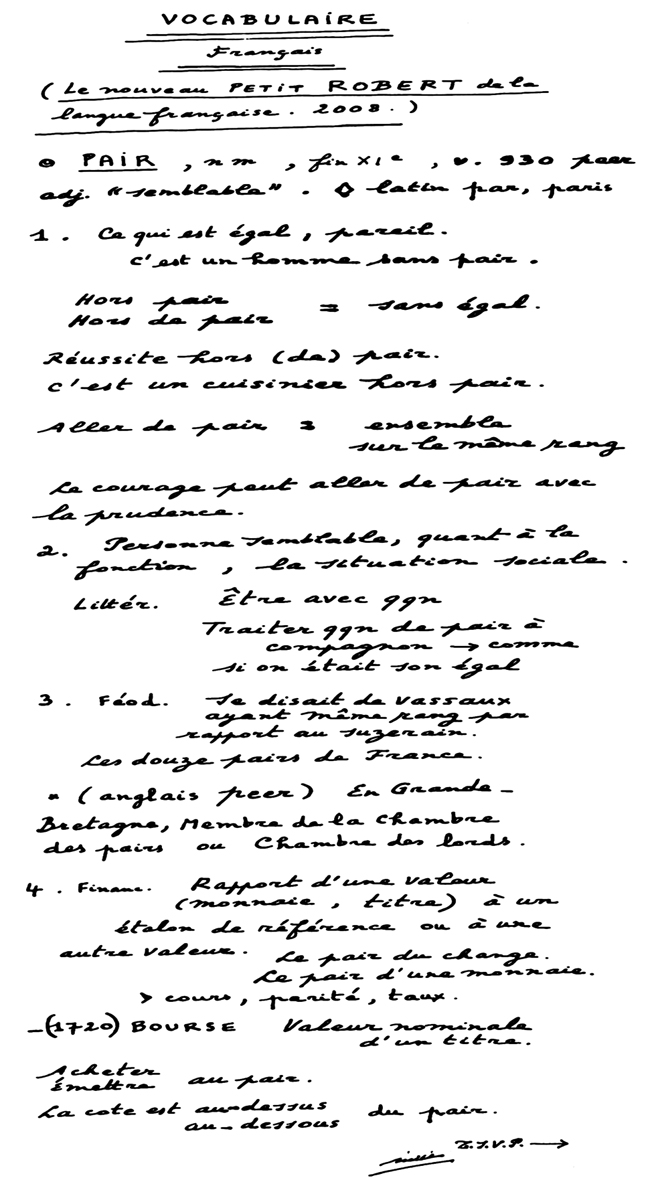 VOCABULAIRE
Français
( Le nouveau PETIT ROBERT de la
langue française. 2008. )
PAIR , n m , fin XIe , v. 930 peer
adj. "semblable" . ◊ latin par, paris
1 . Ce qui est égal, pareil.
C'est un homme sans pair .
Hors pair
Hors de pair = sans égal.
Réussite hors (de) pair.
C'est un cuisinier hors pair.
Aller de pair = ensemble
sur le même rang
Le courage peut aller de pair avec
la prudence.
2. Personne semblable, quant à la
fonction , la situation sociale .
Littér. Être avec qqn
Traiter qqn de pair à
compagnon → comme
si on était son égal
3 . Féod. Se disait de vassaux
ayant même rang par
rapport au suzerain.
Les douze pairs de France.
(anglais peer) En Grande-
Bretagne, Membre de la Chambre
des pairs ou Chambre des lords.
4 . Financ. Rapport d'une valeur
(monnaie , titre) à un
étalon de référence ou à une
autre valeur. Le pair du change.
Le pair d'une monnaie.
> cours, parité, taux.
-(1720) BOURSE Valeur nominale
d'un titre.
Acheter
Émettre au pair.
La cote est au-dessus
au-dessous du pair.
T.S.V.P. →